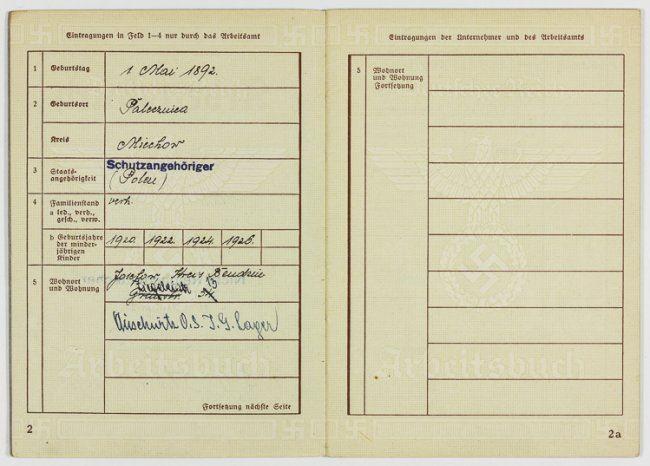 Eintragungen in Feld 1–4 nur durch das Arbeitsamt
1 Geburtstag 1 Mai 1892.
2 Geburtsort Pałecznica
Kreis Miechow
3 Staats-
angehörigkeit
Schutzangehöriger
(Polen)
4 Familienstand verh.
a led., verh.,
gesch., verw.
b Geburtsjahre 1920. 1922. 1924. 1928.
der minder-
jährigen
Kinder
5 Wohnort
und Wohnung
Kreis
Auschwitz O.S. I.G. Lager
Arbeitsbuch
Fortsetzung nächste Seite
2
Eintragungen der Unternehmer und des Arbeitsamts
5 Wohnort
und Wohnung
Fortsetzung
Arbeitsbuch
2a